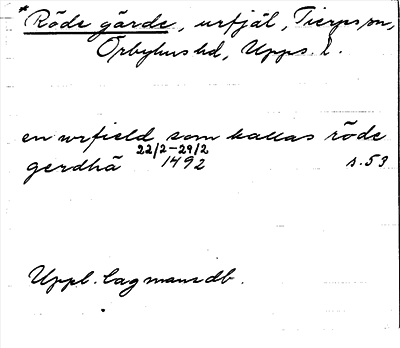 *Röde gärde, urfjäl, Tierps sn,
Örbyhus hd, Upps. l.
en urfield som kallas röde
gerdhä 22/2-29/2 1492 s. 53
Uppl. lagmansdb.